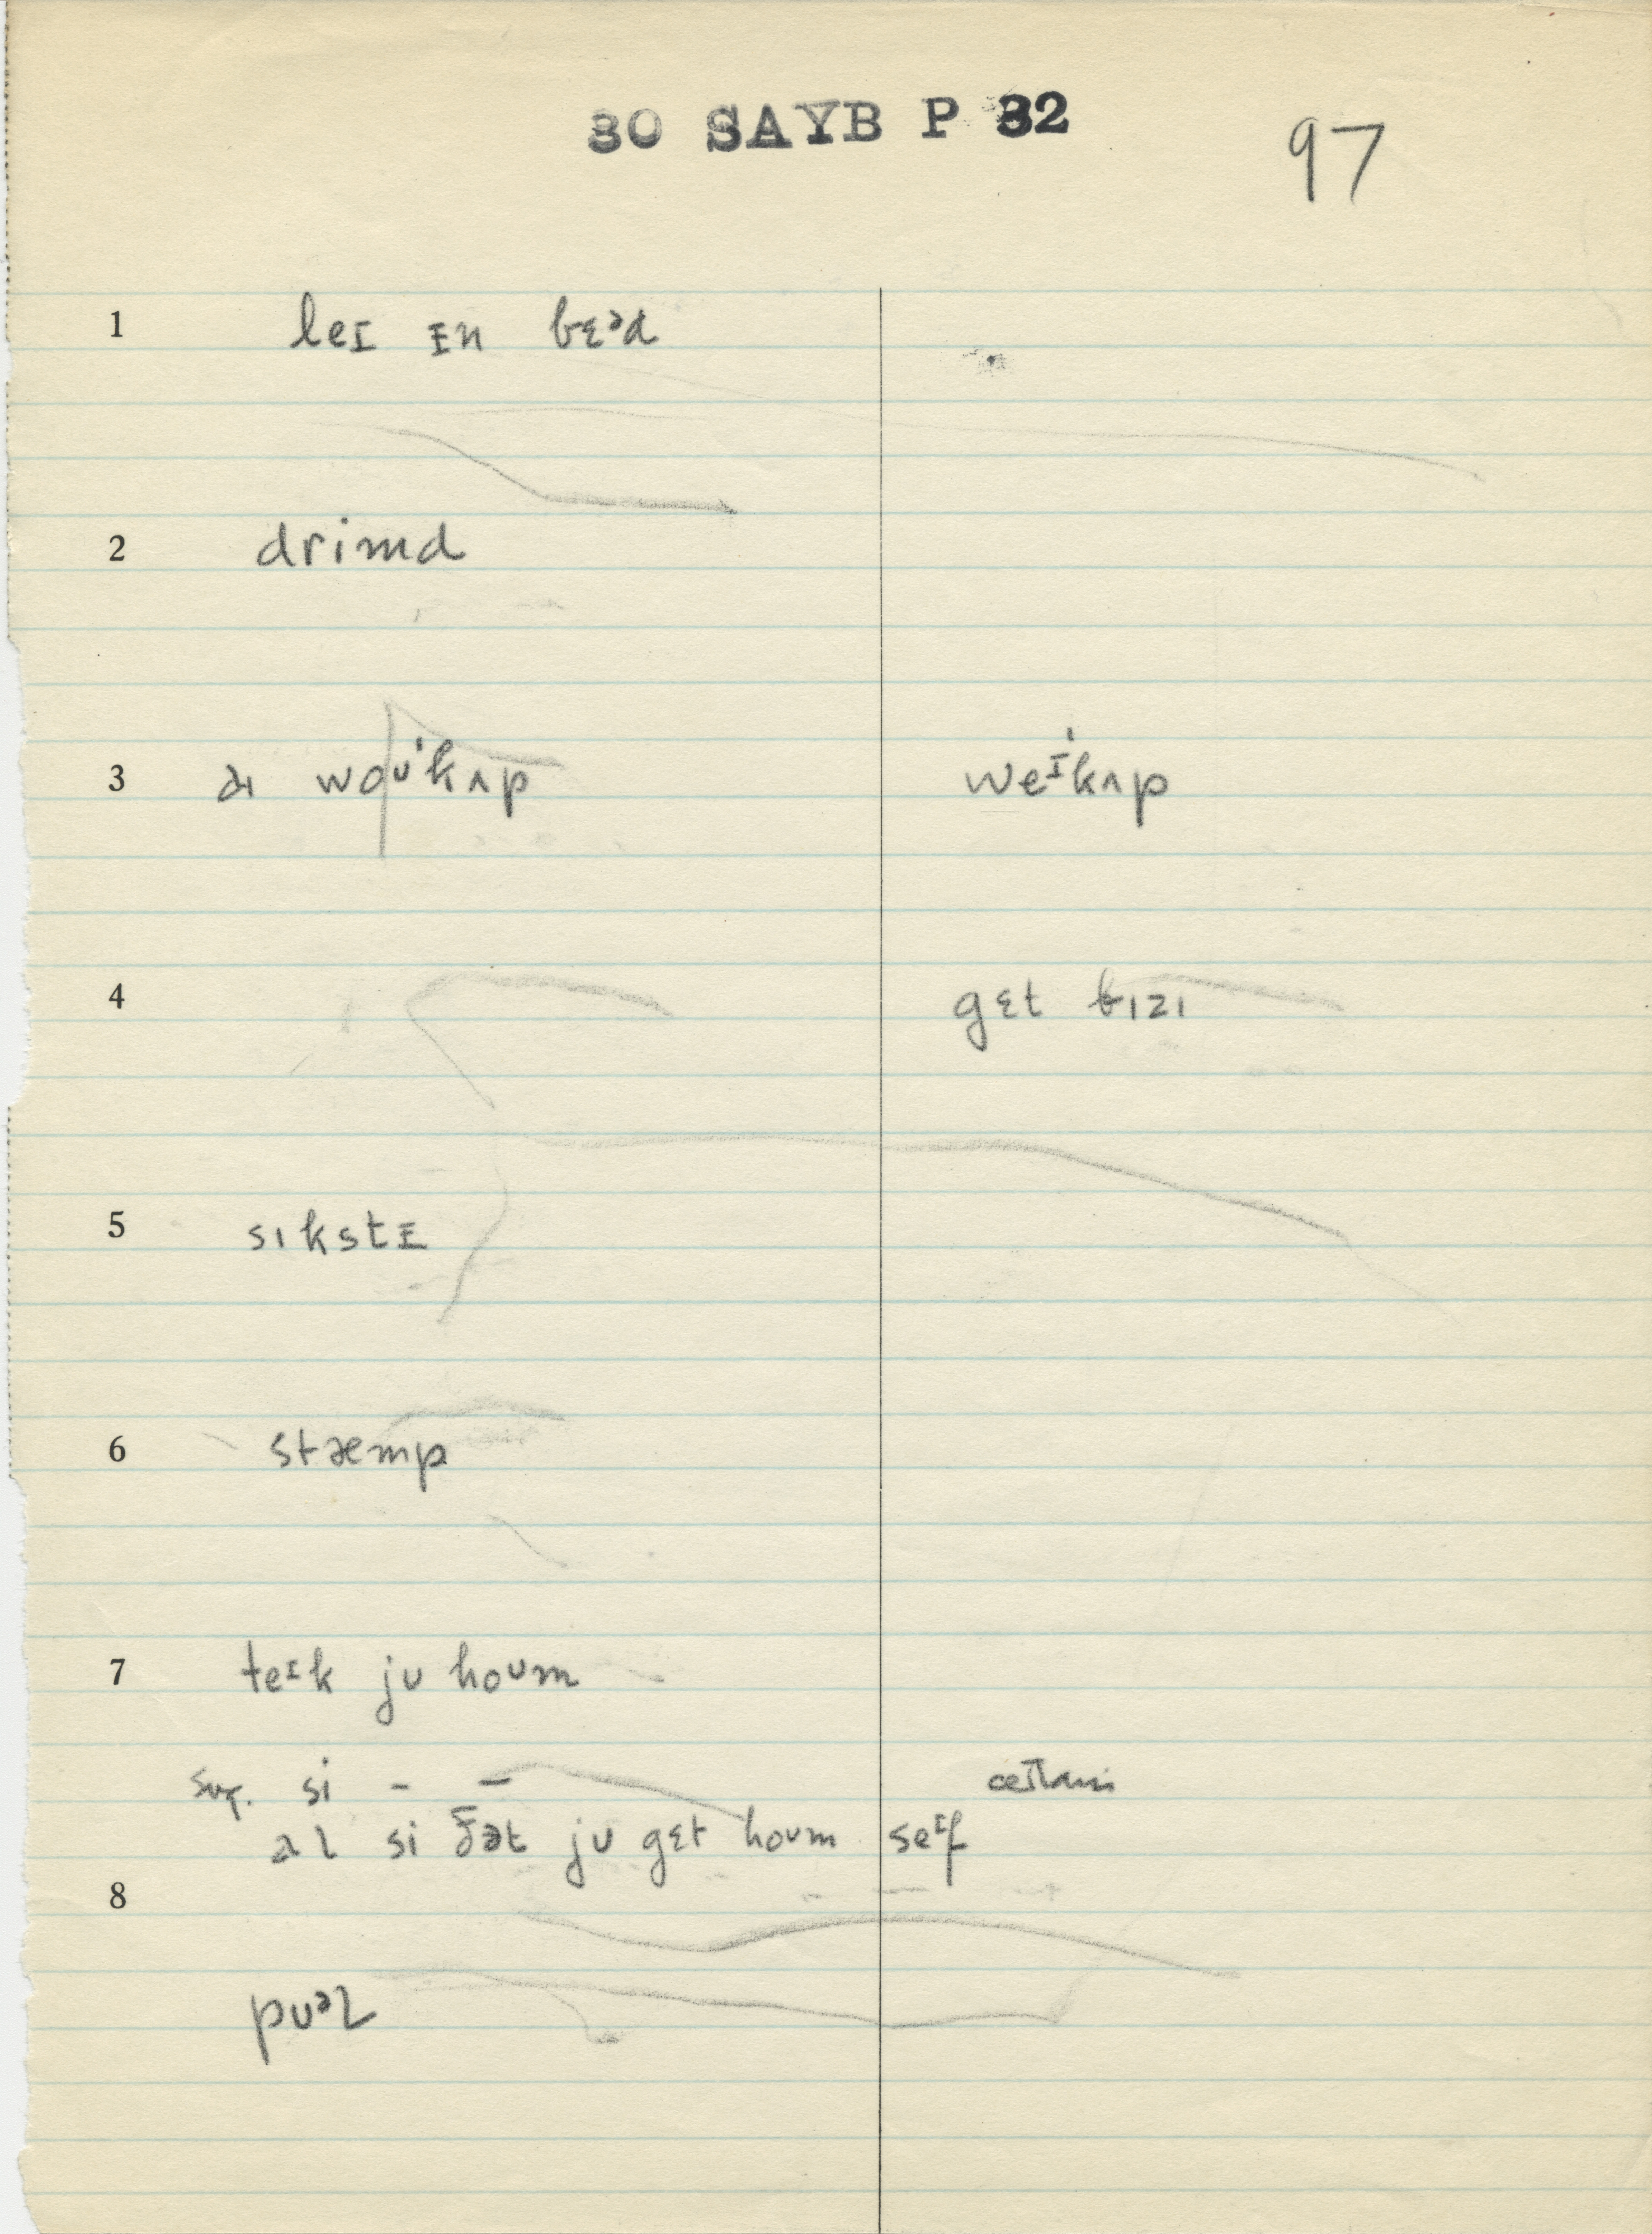 30 SAYB P 32
97
1 leɪ ɪn bɛᵊd
2 drimd
3 aɪ woᶷˈkʌp weᶦˈkʌp
4 gɛt bɪzɪ
5 sɪkstɪ
6 stæmp
7 teᶦk jᴜ hoᶷm
sug. si - -
al si ðət jᴜ gɛt hoᴜm seᶦf
8
pᴜᵊl